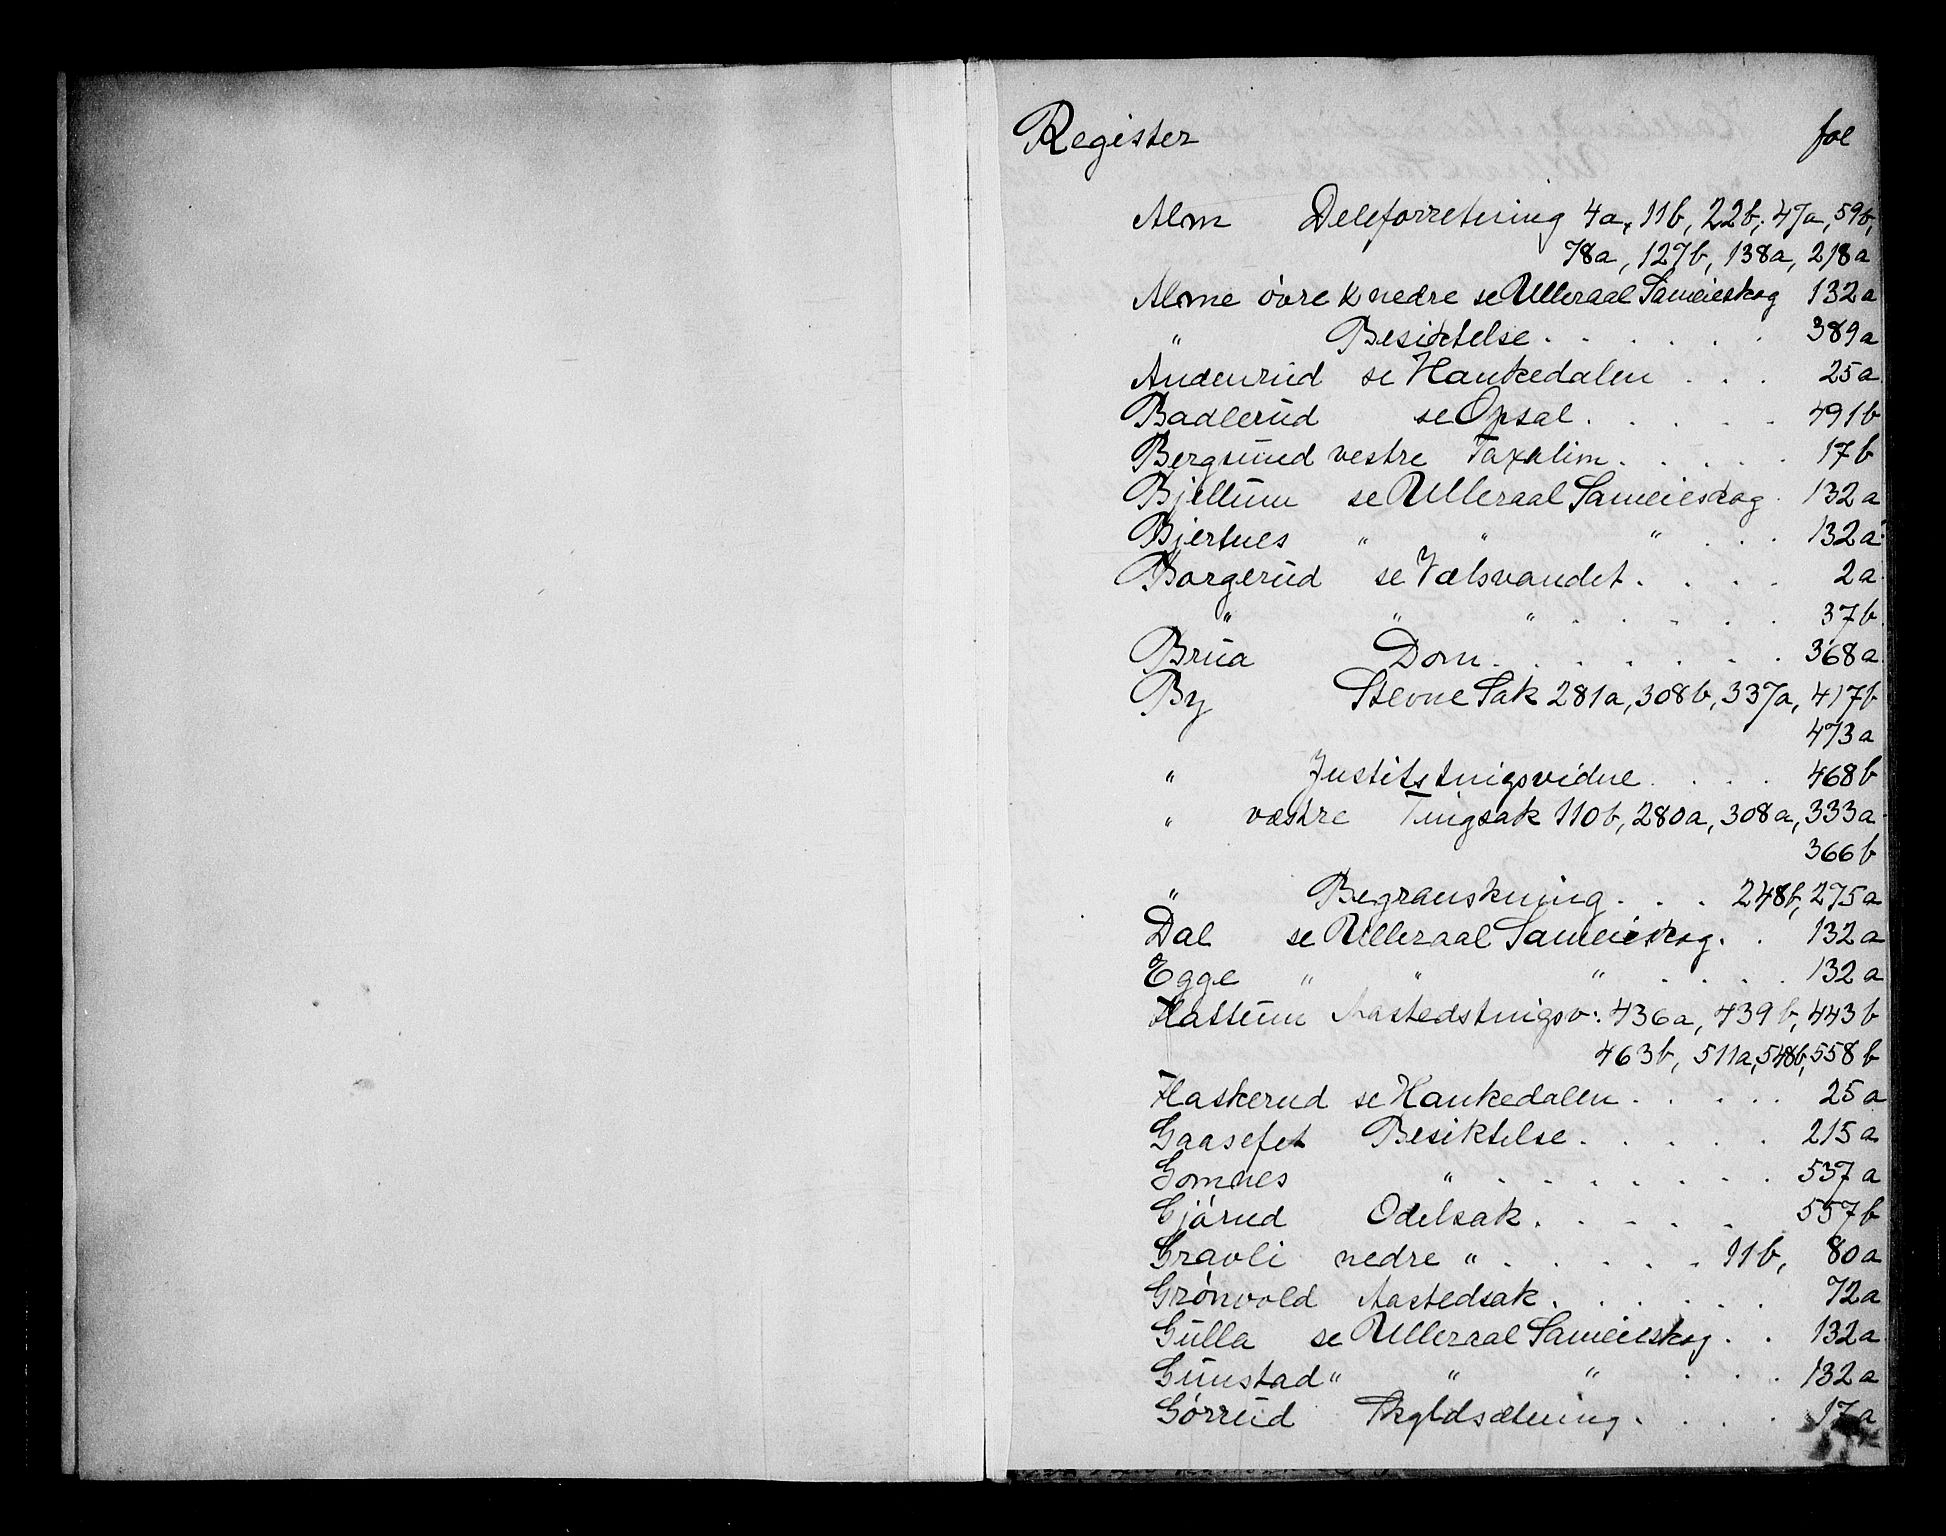 Register fol
Alm Deleforretning 4a, 11b, 22b, 47a, 59b,
78a, 127b, 138a, 218a
Alme övre & nedre se Ulleraal Sameieskog 132a
" Besiktelse . . . . . . 389a
Andenrud se Haukedalen . . . 25a
Badlerud se Opsal . . . . . 491b
Bergsund vestre . . . . . 17b
Bjellum se Ulleraal Sameieskog . 132a
Bjertnes " " " . . . 132a
Borgerud se Vælsvandet . . . . 2a
" " " . . . . . 37b
Brua Dom . . . . . . . 368a
By Stevne Sak 281a, 308b, 337a, 417b
473a
" Justitstingsvidne . . . . 468b
" væstre Tingsak 110b, 280a, 308a, 333a
366b
" Begranskning . . . 248b, 275a
Dal se Ulleraal Sameieskog . . 132a
Egge " " " . . . . 132a
Flattum Aastedstingsv: 436a, 439b, 443b
463b, 511a, 548b, 558b
Flaskerud se Haukedalen . . . . . 25a
Gaasefet Besiktelse . . . . . 215a
Gomnes " . . . . . . . 537a
Gjörud Odelsak . . . . . 557b
Gravli nedre " . . . . . 11b, 80a
Grönvold Aastedsak . . . . . . 72a
Gulla se Ulleraal Sameieskog . . 132a
Gunstad " " " . . . 132a
Görrud Skyldsætning . . . . 17a